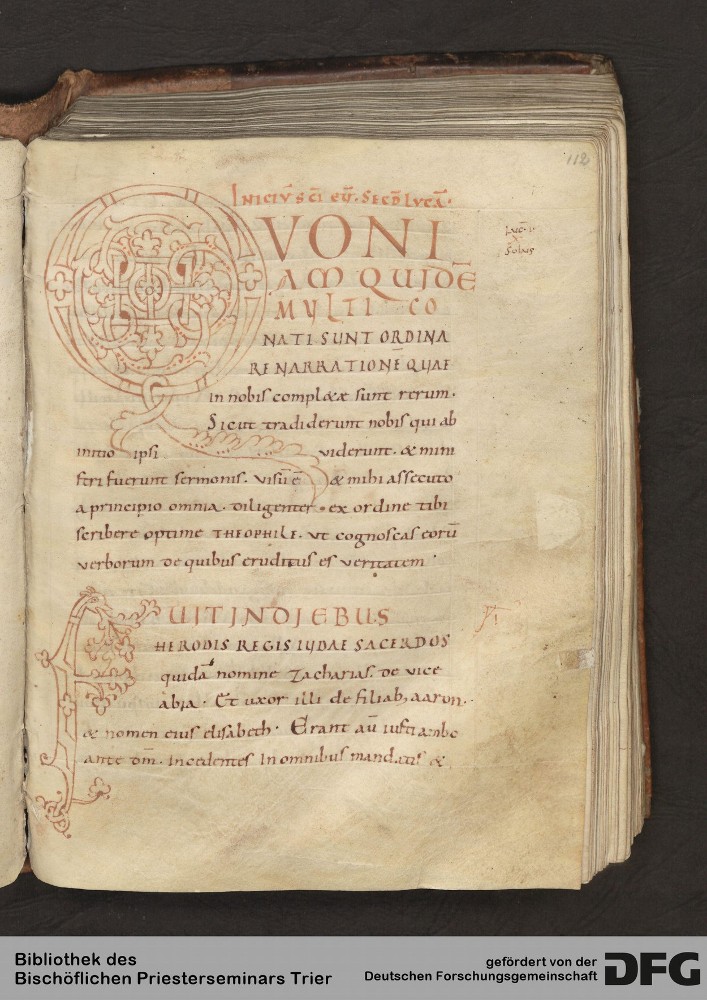 112
INICIŪ S C̄I EṼ. SECD̄ LVCĀ.
QVONI
AM QUIDĒ
MULTI CO
NATI SUNT ORDINA
RE NARRATIONĒ QUAE
in nobis complętę sunt rerum.
Sicut tradiderunt nobis qui ab
initio ipsi viderunt. & mini
stri fuerunt sermonis. visū ē & mihi assecuto
a principio omnia. diligenter. ex ordine tibi
scribere optime THEOPHILE. ut cognoscas eorū
verborum de quibus eruditus es veritatem.
FUIT IN DIEBUS
HERODIS REGIS IUDAE SACERDOS
quidā nomine zacharias. de vice
abia. Et uxor illi de filiab; aaron.
& nomen eius elisabeth. Erant aū iusti ambo
ante dm̄. Incedentes In omnibus mandatis &
Bibliothek des
Bischöflichen Priesterseminars Trier
gefördert von der
Deutschen Forschungsgemeinschaft
DFG